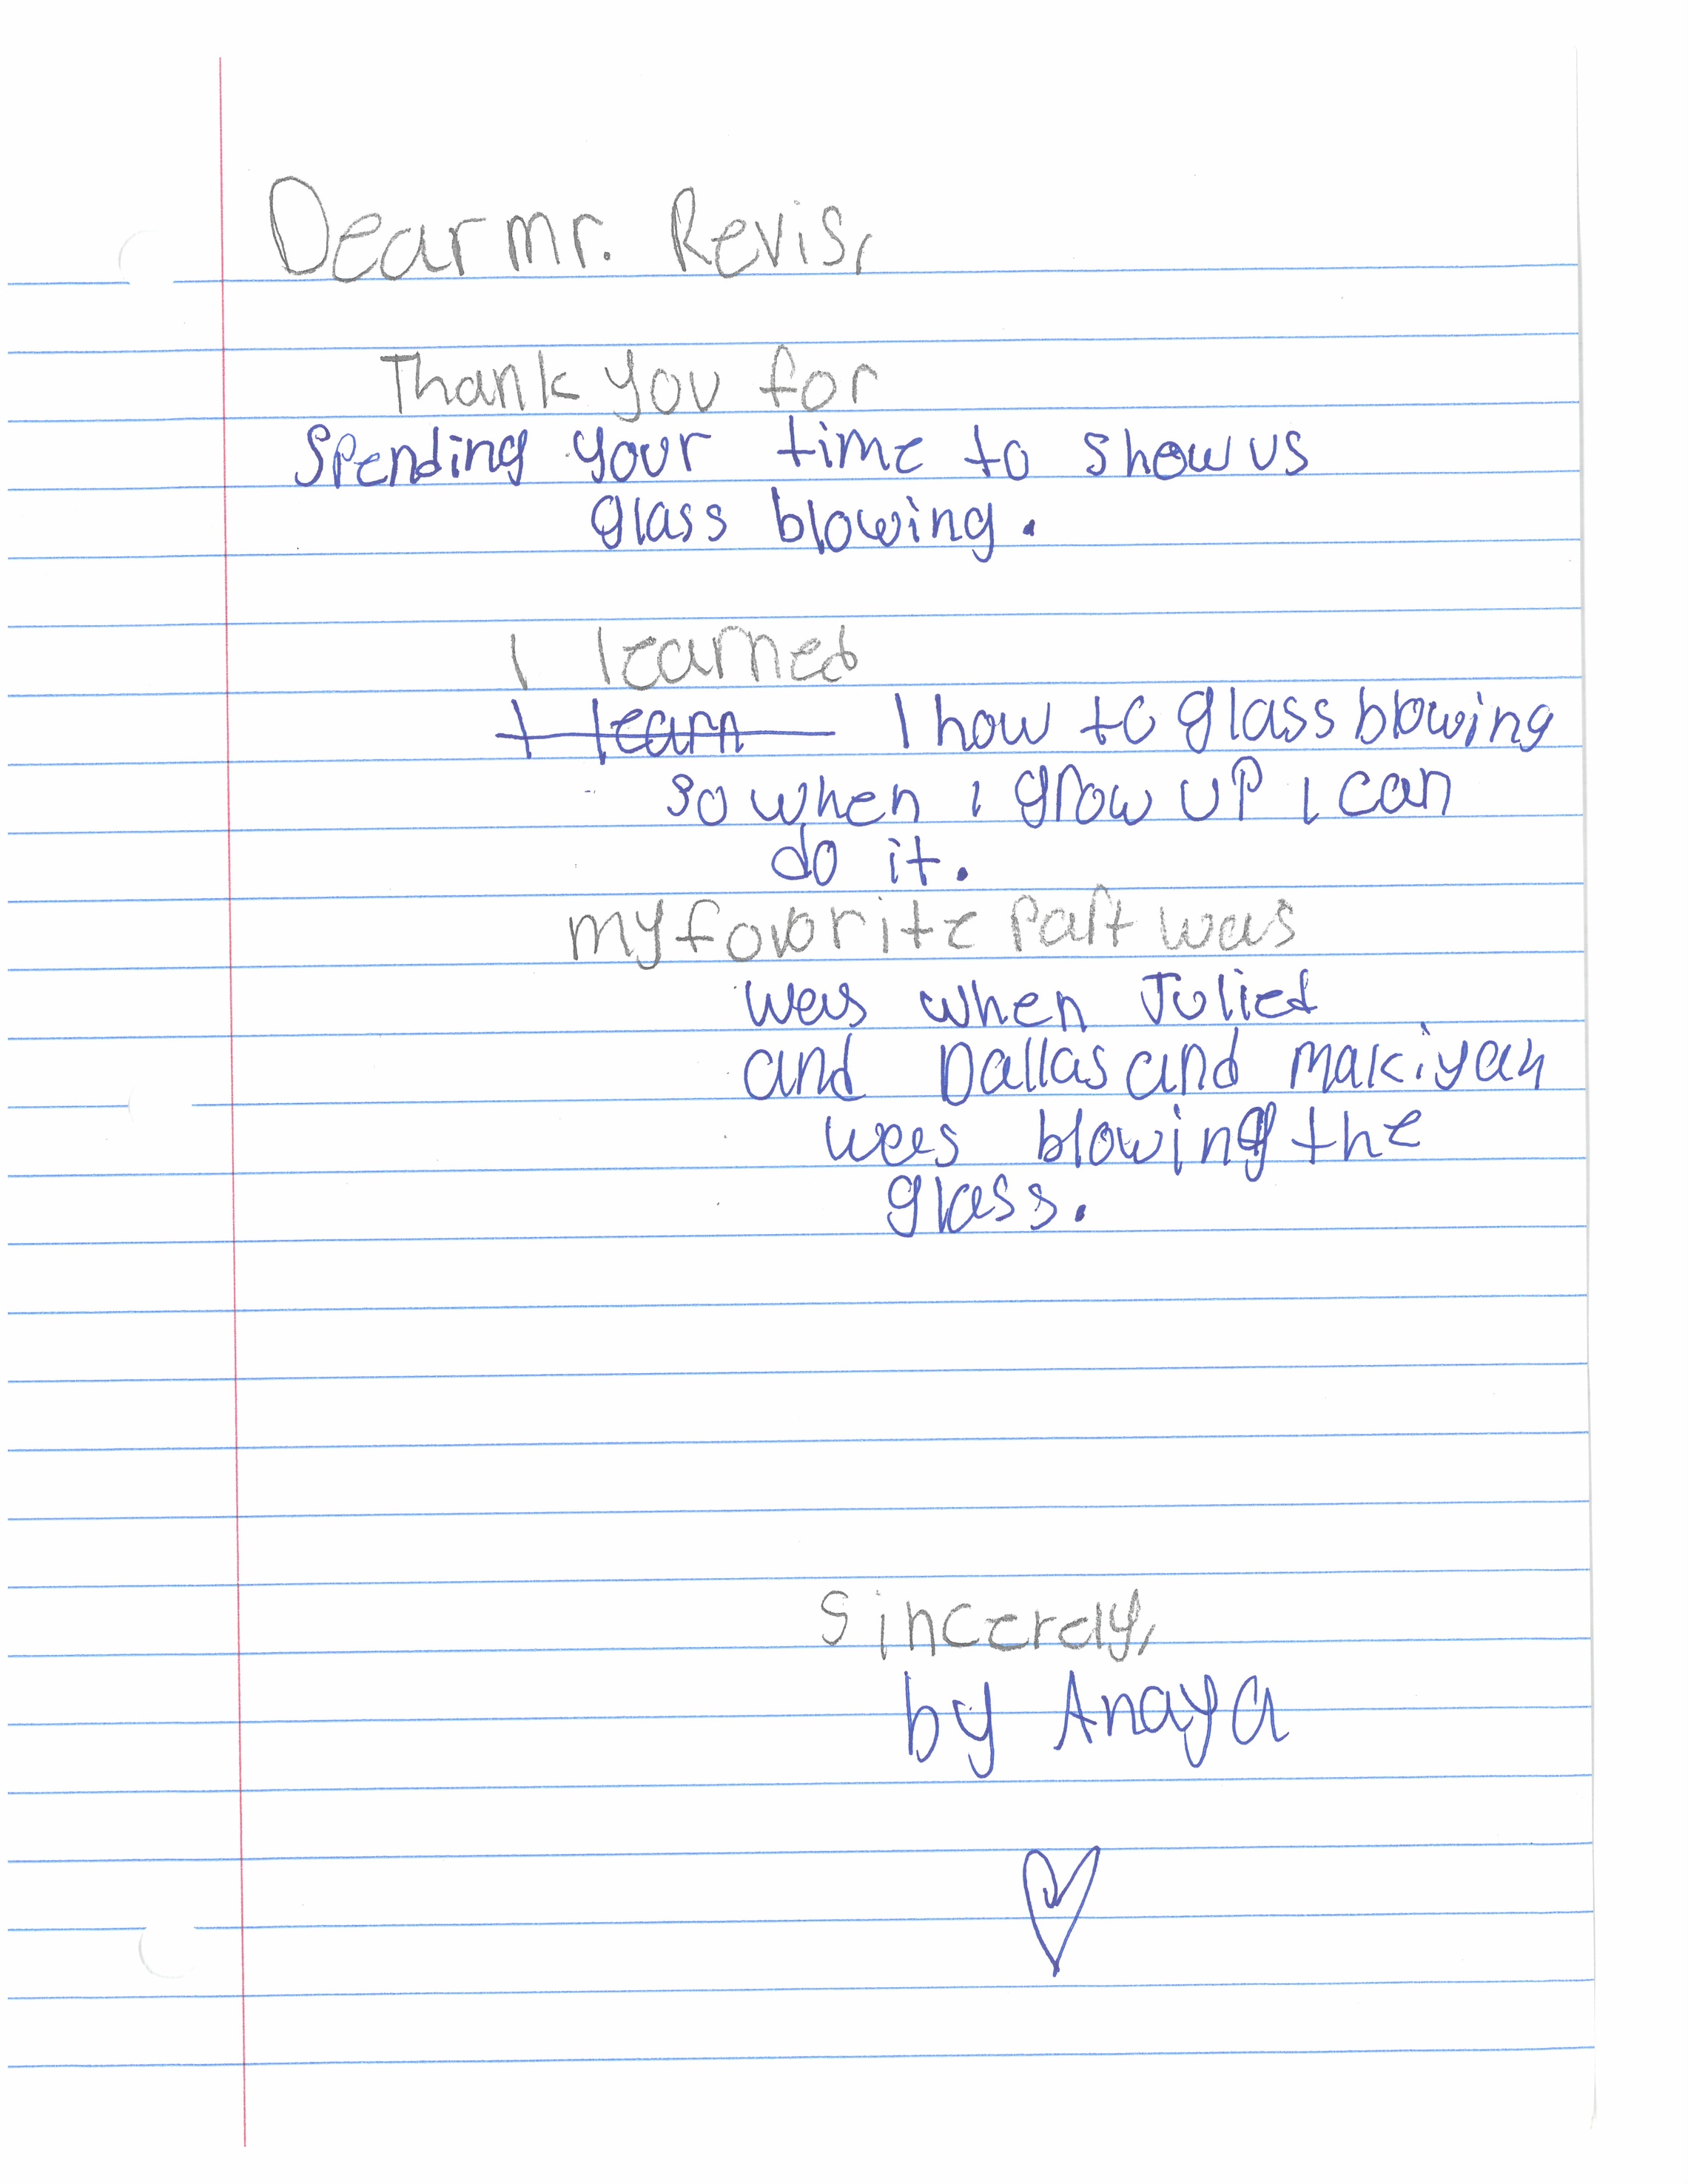 Dear mr. Revis,
Thank you for
Spending your time to show us
glass blowing.
I learned
I learn I how to glass blowing
so when i grow up i can
do it.
my favorite part was
was when Julied
and Dallas and makiyah
was blowing the
glass.
Sincerely,
by Anaya